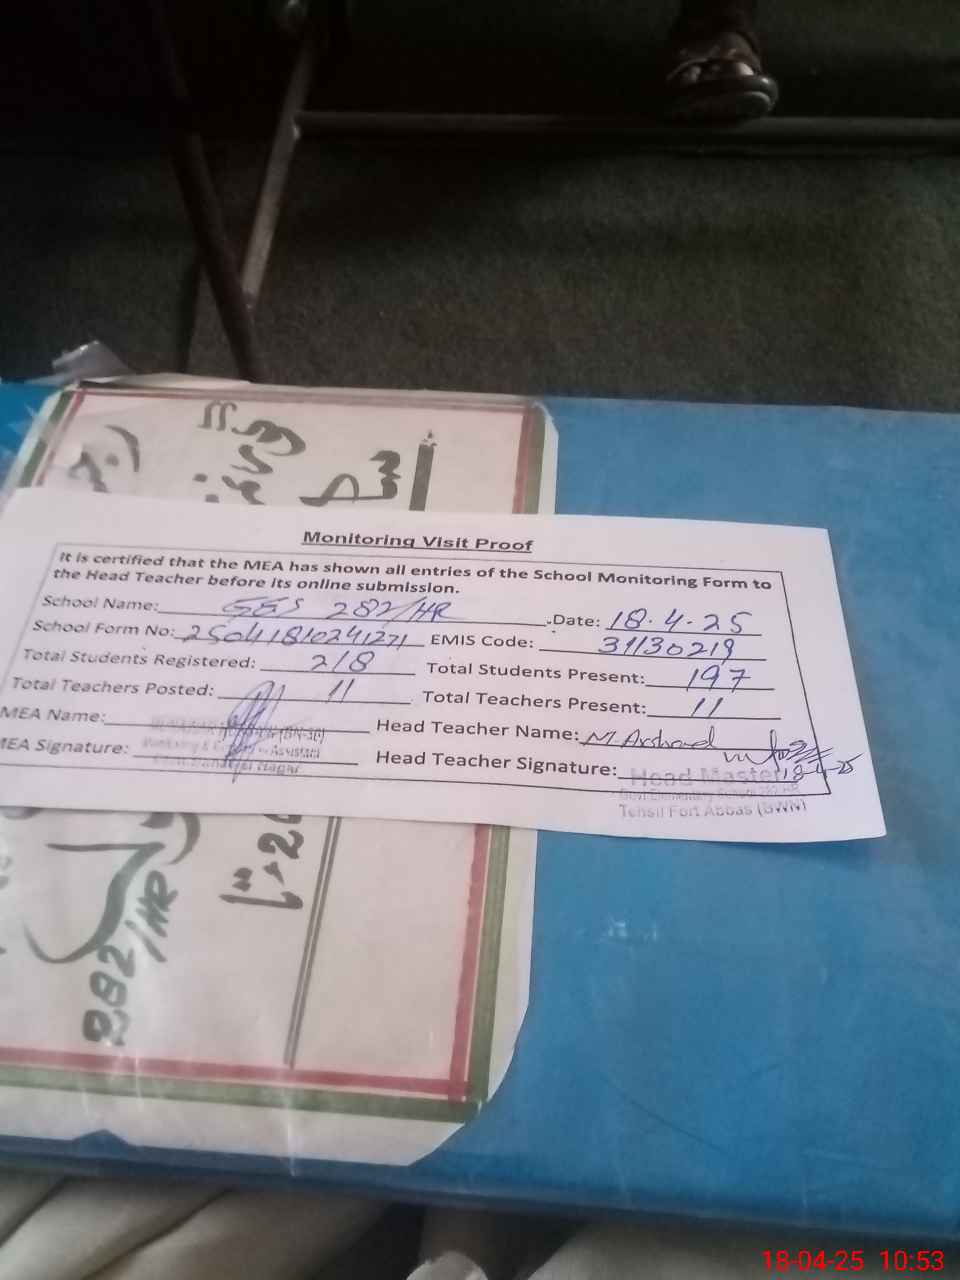 Monitoring Visit Proof
It is certified that the MEA has shown all entries of the School Monitoring Form to
the Head Teacher before its online submission.
School Name: GES 282/HR Date: 18.4.25
School Form No: 25041810241271 EMIS Code: 31130219
Total Students Registered: 218 Total Students Present: 197
Total Teachers Posted: 11 Total Teachers Present: 11
MEA Name: Head Teacher Name: M Arshad
MEA Signature: Head Teacher Signature: 18-4-25
Head Master
Govt. Elementary School 282/HR
Tehsil Fort Abbas (BWN)
282/HR
18-04-25 10:53